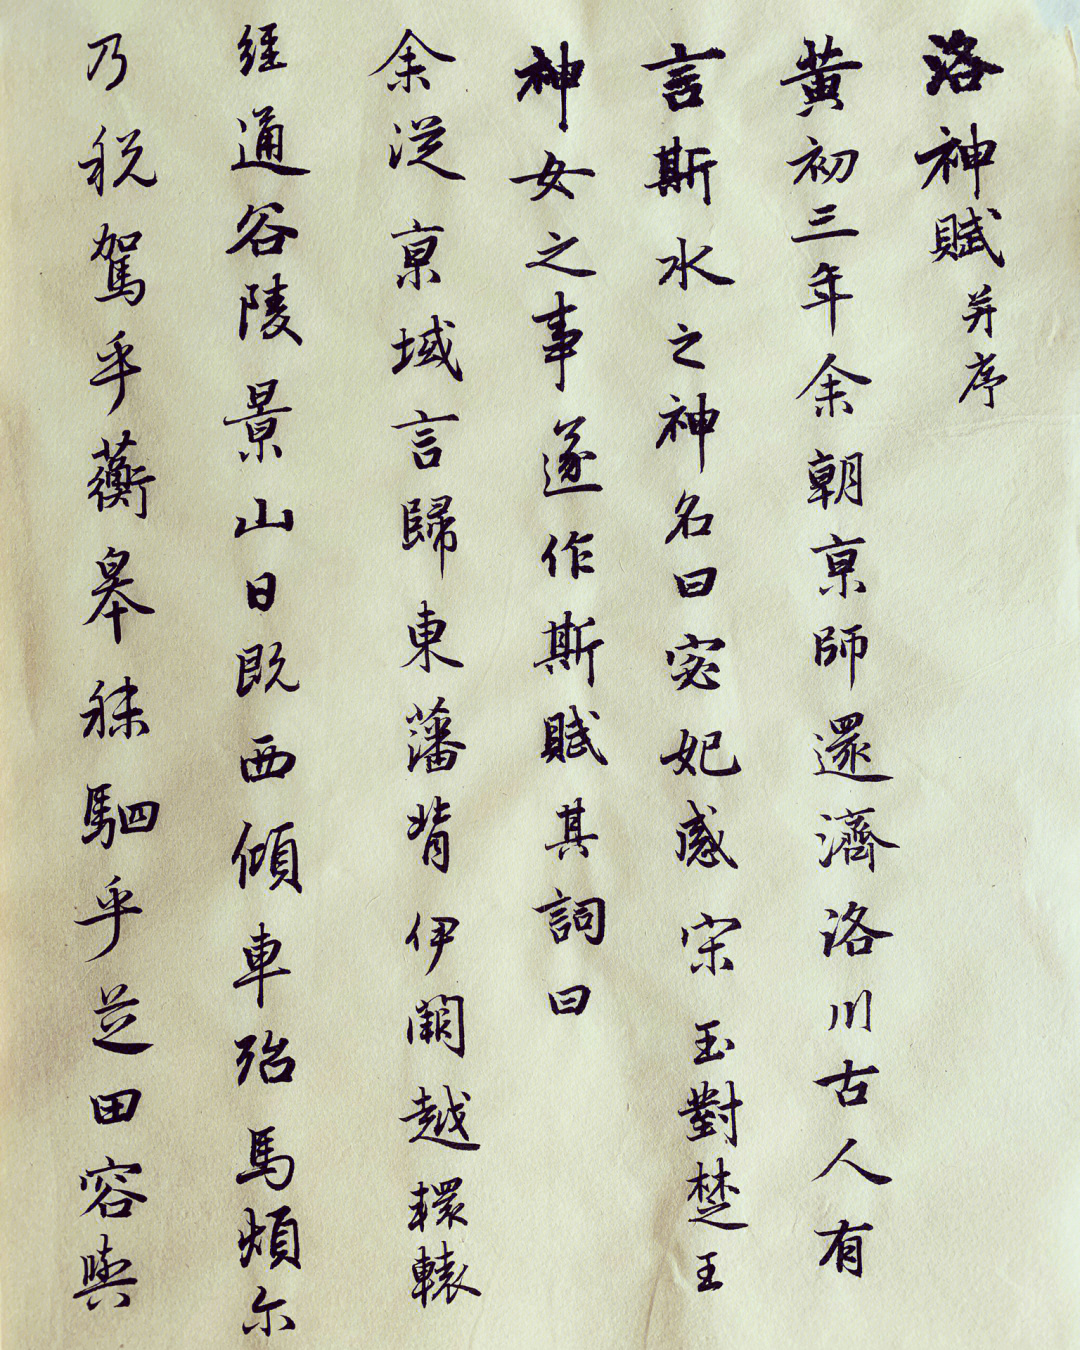 洛神賦并序
黃初三年余朝京師還濟洛川古人有
言斯水之神名曰宓妃感宋玉對楚王
神女之事遂作斯賦其詞曰
余從京域言歸東藩背伊闕越轘轅
經通谷陵景山日既西傾車殆馬煩尔
乃税駕乎蘅皋秣駟乎芝田容與